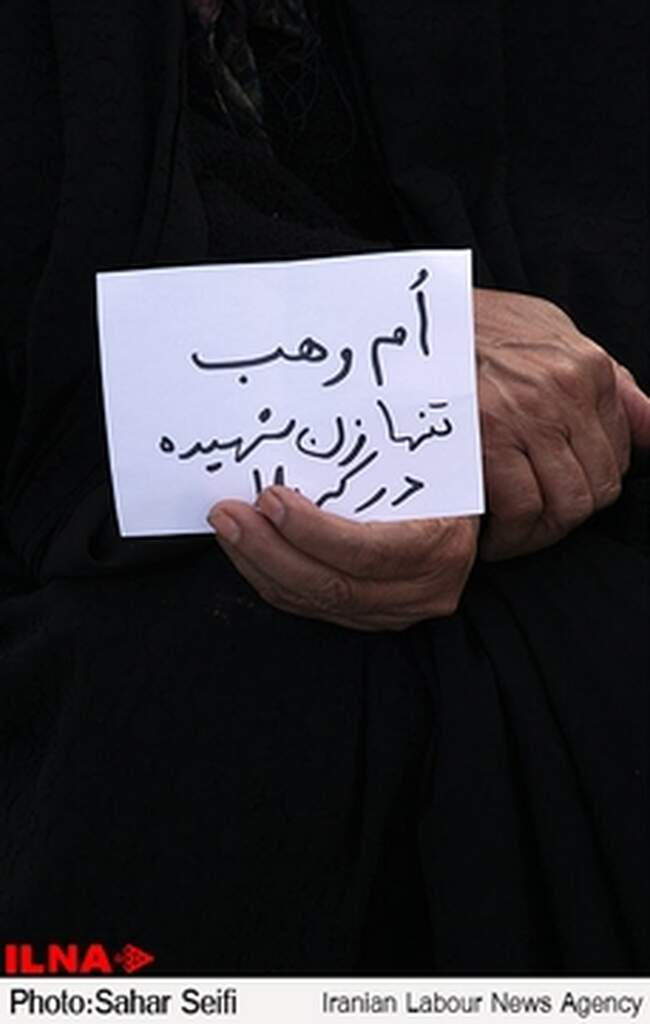 اُم وهب
تنها زن شهیده
در کربلا
ILNA
Photo:Sahar Seifi
Iranian Labour News Agency